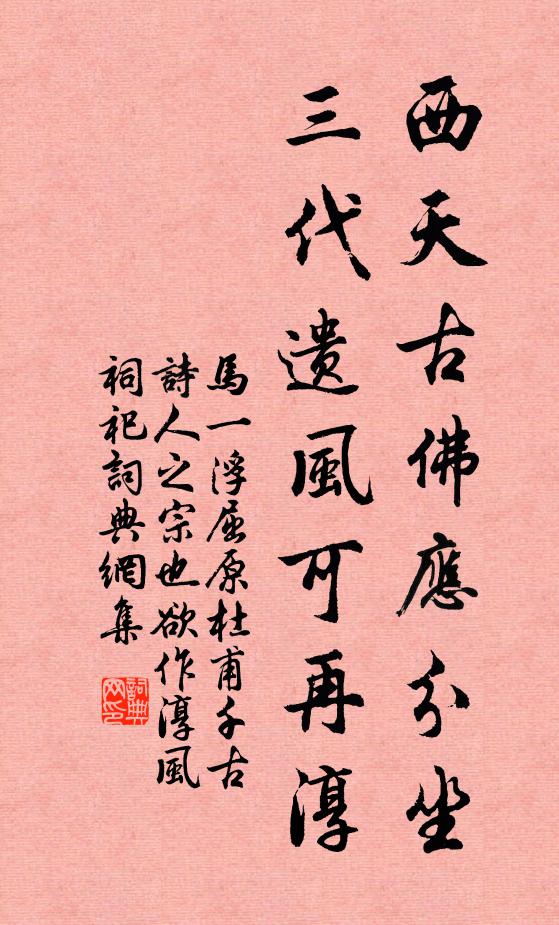 西天古佛應分坐
三代遗風可再淳
馬一浮屈原杜甫千古
詩人之宗也欲作淳風
祠祀詞典網集
詞典
网印